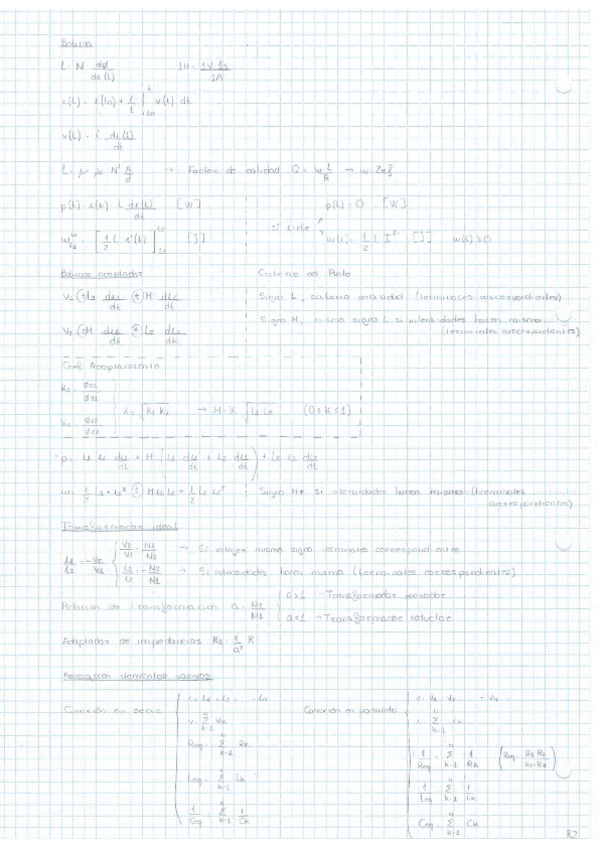 Bobina
L = N dø/di(t)    1H = 1V 1s/1A
i(t) = i(t0) + 1/L ∫ v(t) dt
v(t) = L di(t)/dt
L = μ μ0 N² A/d → Factor de calidad Q = w L/R → w 2πf
p(t) = i(t) L di(t)/dt [W]    p(t) = 0 [W]
w = [1/2 L i²(t)] [J]    si i=cte    w(t) = 1/2 L I² [J]    w(t) ≥ 0
Bobinas acopladas    Criterio del Punto
V1 = (±) L1 di1/dt (±) M di2/dt    Signo L, criterio (terminales correspondientes)
V2 = (±) M di1/dt (±) L2 di2/dt    Signo M, mismo signo L si intensidades hacen mismo (terminales correspondientes)
Coef. Acoplamiento
K1 = ø21/ø11
K2 = ø12/ø22    K = √K1 K2 → M = K √L1 L2    (0 ≤ K ≤ 1)
p = L1 i1 di1/dt + M (i1 di2/dt + i2 di1/dt) + L2 i2 di2/dt
w = 1/2 L1 i1² (±) M i1 i2 + 1/2 L2 i2²    Signo M+ si intensidades hacen mismo (terminales correspondientes)
Transformador ideal
i1/i2 = -V2/V1    V2/V1 = N2/N1 → Si voltajes mismo signo terminales correspondientes
i1/i2 = - N2/N1 → Si intensidades hacen mismo (terminales correspondientes)
Relación de transformación a = N2/N1    a>1 → Transformador elevador
a<1 → Transformador reductor
Adaptador de impedancias R1 = 1/a² R
Asociación elementos pasivos
Conexión en serie    i = i1 = i2 = ... = in    Conexión en paralelo    v = v1 = v2 = ... = vn
v = Σ vk    i = Σ ik
Req = Σ Rk    1/Req = Σ 1/Rk    (Req = R1 R2/R1+R2)
Leq = Σ Lk    1/Leq = Σ 1/Lk
1/Ceq = Σ 1/Ck    Ceq = Σ Ck
R2